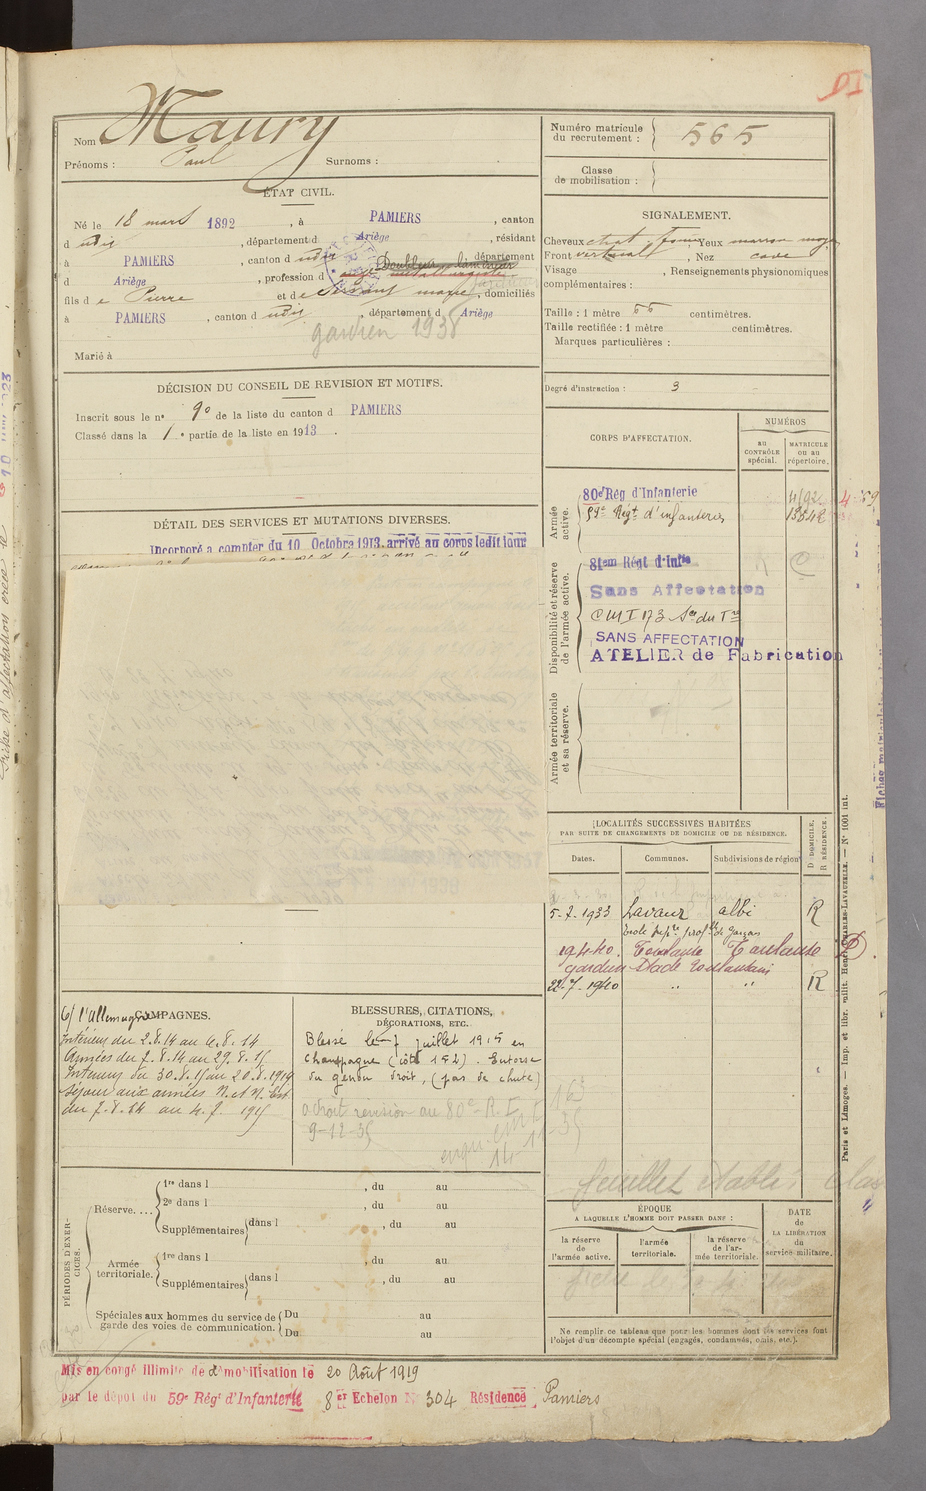 DI
Nom Maury
Prénoms : Paul Surnoms :
Numéro matricule du recrutement : 565
Classe de mobilisation :
ÉTAT CIVIL.
Né le 18 mars 1892, à PAMIERS, canton
d udit, département d Ariège, résidant
à PAMIERS, canton d udit, département
d Ariège, profession d
fils d e Pierre et d e Servant marie, domiciliés
à PAMIERS, canton d udit, département d Ariège
gardien 1938
Marié à
SIGNALEMENT.
Cheveux chat Yeux marron moy
Front vertical, Nez cave
Visage , Renseignements physionomiques
complémentaires :
Taille : 1 mètre 66 centimètres.
Taille rectifiée : 1 mètre centimètres.
Marques particulières :
Degré d'instruction : 3
DÉCISION DU CONSEIL DE REVISION ET MOTIFS.
Inscrit sous le n° 90 de la liste du canton d PAMIERS
Classé dans la 1e partie de la liste en 1913.
DÉTAIL DES SERVICES ET MUTATIONS DIVERSES.
Incorporé a compter du 10 Octobre 1913. arrivé au corps ledit jour
CORPS D'AFFECTATION.
NUMÉROS
au CONTRÔLE spécial.
MATRICULE ou au répertoire.
Armée active.
80e Rég d'Infanterie
Regt d'infanterie
Disponibilité et réserve de l'armée active.
81em Régt d'Infie
Sans Affectation
SANS AFFECTATION
ATELIER de Fabrication
Armée territoriale et sa réserve.
LOCALITÉS SUCCESSIVES HABITÉES
PAR SUITE DE CHANGEMENTS DE DOMICILE OU DE RÉSIDENCE.
Dates. Communes. Subdivisions de région
D DOMICILE. R RÉSIDENCE.
5-7-1933 Lavaur albi R
19-4-40 Toulouse Toulouse D
gardien Stade Toulousain
22-7-1940 " " R
CAMPAGNES.
C/ l'Allemagne
Intérieur du 2.8.14 au 6.8.14
Armées du 7.8.14 au 29.8.15
Intérieur du 30.8.15 au 20.8.1919
Séjour aux armées N. et N. Est
du 7.8.14 au 4.7 1915
BLESSURES, CITATIONS, DÉCORATIONS, ETC.
Blessé le 7 juillet 1915 en
Champagne (côte 152). Entorse
du genou droit, (pas de chute)
9-12-35
feuillet établi
PÉRIODES D'EXERCICES.
Réserve....
1re dans l , du au
2e dans l , du au
Supplémentaires dans l , du au
Armée territoriale.
1re dans l , du au
Supplémentaires dans l , du au
Spéciales aux hommes du service de garde des voies de communication.
Du au
Du au
ÉPOQUE
A LAQUELLE L'HOMME DOIT PASSER DANS :
la réserve de l'armée active.
l'armée territoriale.
la réserve de l'armée territoriale.
DATE de LA LIBÉRATION du service militaire.
Ne remplir ce tableau que pour les hommes dont les services font
l'objet d'un décompte spécial (engagés, condamnés, omis, etc.).
Paris et Limoges. — Imp. et libr. milit. Henri CHARLES-LAVAUZELLE. — N° 1001 int.
Mis en congé illimité de démobilisation le 20 Août 1919
par le dépôt du 59e Régt d'Infanterie 8er Echelon N° 304 Résidence Pamiers